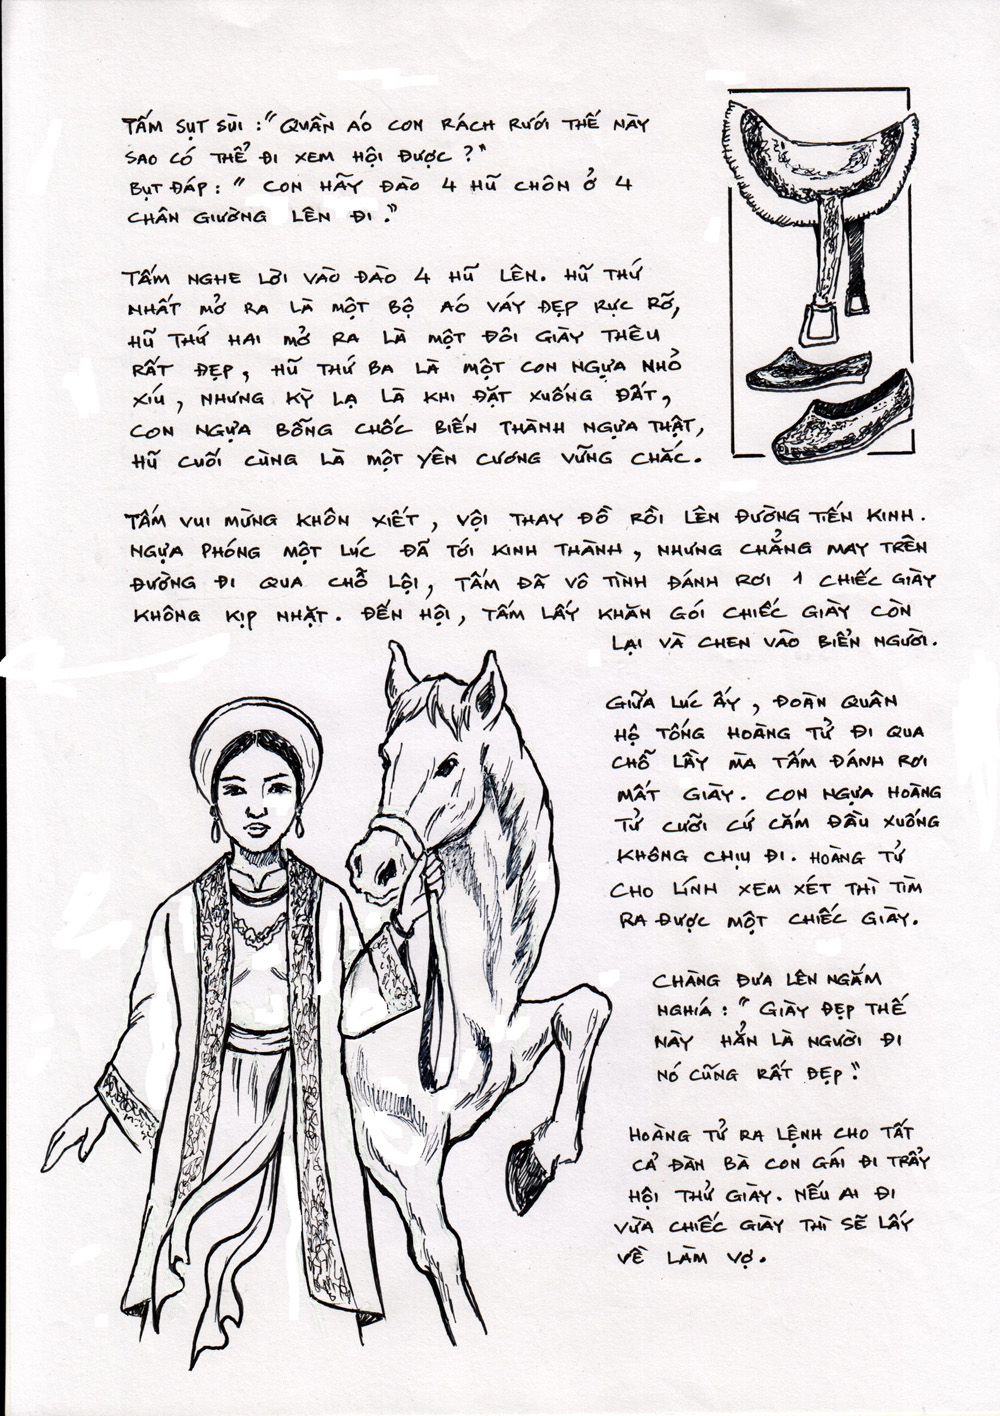 TẤM SỤT SÙI : " QUẦN ÁO CON RÁCH RƯỚI THẾ NÀY
SAO CÓ THỂ ĐI XEM HỘI ĐƯỢC ? "
BỤT ĐÁP : " CON HÃY ĐÀO 4 HŨ CHÔN Ở 4
CHÂN GIƯỜNG LÊN ĐI . "
TẤM NGHE LỜI VÀO ĐÀO 4 HŨ LÊN. HŨ THỨ
NHẤT MỞ RA LÀ MỘT BỘ ÁO VÁY ĐẸP RỰC RỠ,
HŨ THỨ HAI MỞ RA LÀ MỘT ĐÔI GIÀY THÊU
RẤT ĐẸP, HŨ THỨ BA LÀ MỘT CON NGỰA NHỎ
XÍU, NHƯNG KỲ LẠ LÀ KHI ĐẶT XUỐNG ĐẤT,
CON NGỰA BỖNG CHỐC BIẾN THÀNH NGỰA THẬT,
HŨ CUỐI CÙNG LÀ MỘT YÊN CƯƠNG VỮNG CHẮC.
TẤM VUI MỪNG KHÔN XIẾT, VỘI THAY ĐỒ RỒI LÊN ĐƯỜNG TIẾN KINH.
NGỰA PHÓNG MỘT LÚC ĐÃ TỚI KINH THÀNH, NHƯNG CHẲNG MAY TRÊN
ĐƯỜNG ĐI QUA CHỖ LỘI, TẤM ĐÃ VÔ TÌNH ĐÁNH RƠI 1 CHIẾC GIÀY
KHÔNG KỊP NHẶT. ĐẾN HỘI, TẤM LẤY KHĂN GÓI CHIẾC GIÀY CÒN
LẠI VÀ CHEN VÀO BIỂN NGƯỜI.
GIỮA LÚC ẤY, ĐOÀN QUÂN
HỘ TỐNG HOÀNG TỬ ĐI QUA
CHỖ LẦY MÀ TẤM ĐÁNH RƠI
MẤT GIÀY. CON NGỰA HOÀNG
TỬ CƯỠI CỨ CẮM ĐẦU XUỐNG
KHÔNG CHỊU ĐI. HOÀNG TỬ
CHO LÍNH XEM XÉT THÌ TÌM
RA ĐƯỢC MỘT CHIẾC GIÀY.
CHÀNG ĐƯA LÊN NGẮM
NGHÍA : " GIÀY ĐẸP THẾ
NÀY HẲN LÀ NGƯỜI ĐI
NÓ CŨNG RẤT ĐẸP."
HOÀNG TỬ RA LỆNH CHO TẤT
CẢ ĐÀN BÀ CON GÁI ĐI TRẨY
HỘI THỬ GIÀY. NẾU AI ĐI
VỪA CHIẾC GIÀY THÌ SẼ LẤY
VỀ LÀM VỢ.